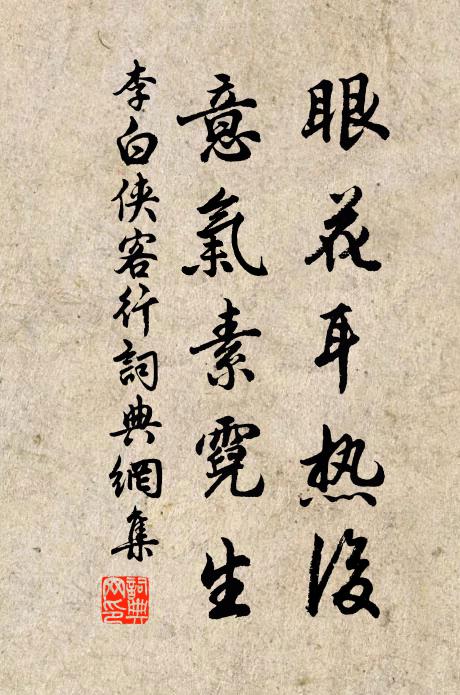 眼花耳热後
意氣素霓生
李白侠客行詞典網集
詞典网印